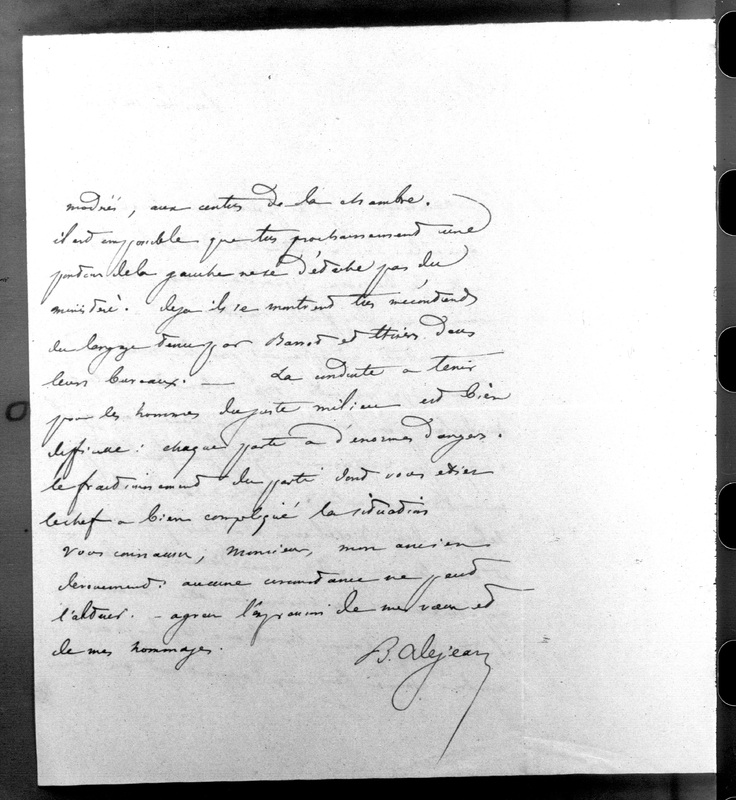 modérés, aux centres de la chambre.
il est impossible que très prochainement une
portion de la gauche ne se détache pas du
ministère. deja ils se montrent très mécontents
du langage tenu par Barrot et thiers dans
leurs bureaux. — La conduite a tenir
pour les hommes du juste milieu est bien
difficile : chaque parti a d'énormes dangers.
le fractionnement du parti dont vous etiez
le chef a bien compliqué la situation
vous connaissez, Monsieur, mon ancien
dévouement : aucune circonstance ne peut
l'altérer. — agréez l'expression de mes vœux et
de mes hommages.
B. Dejean